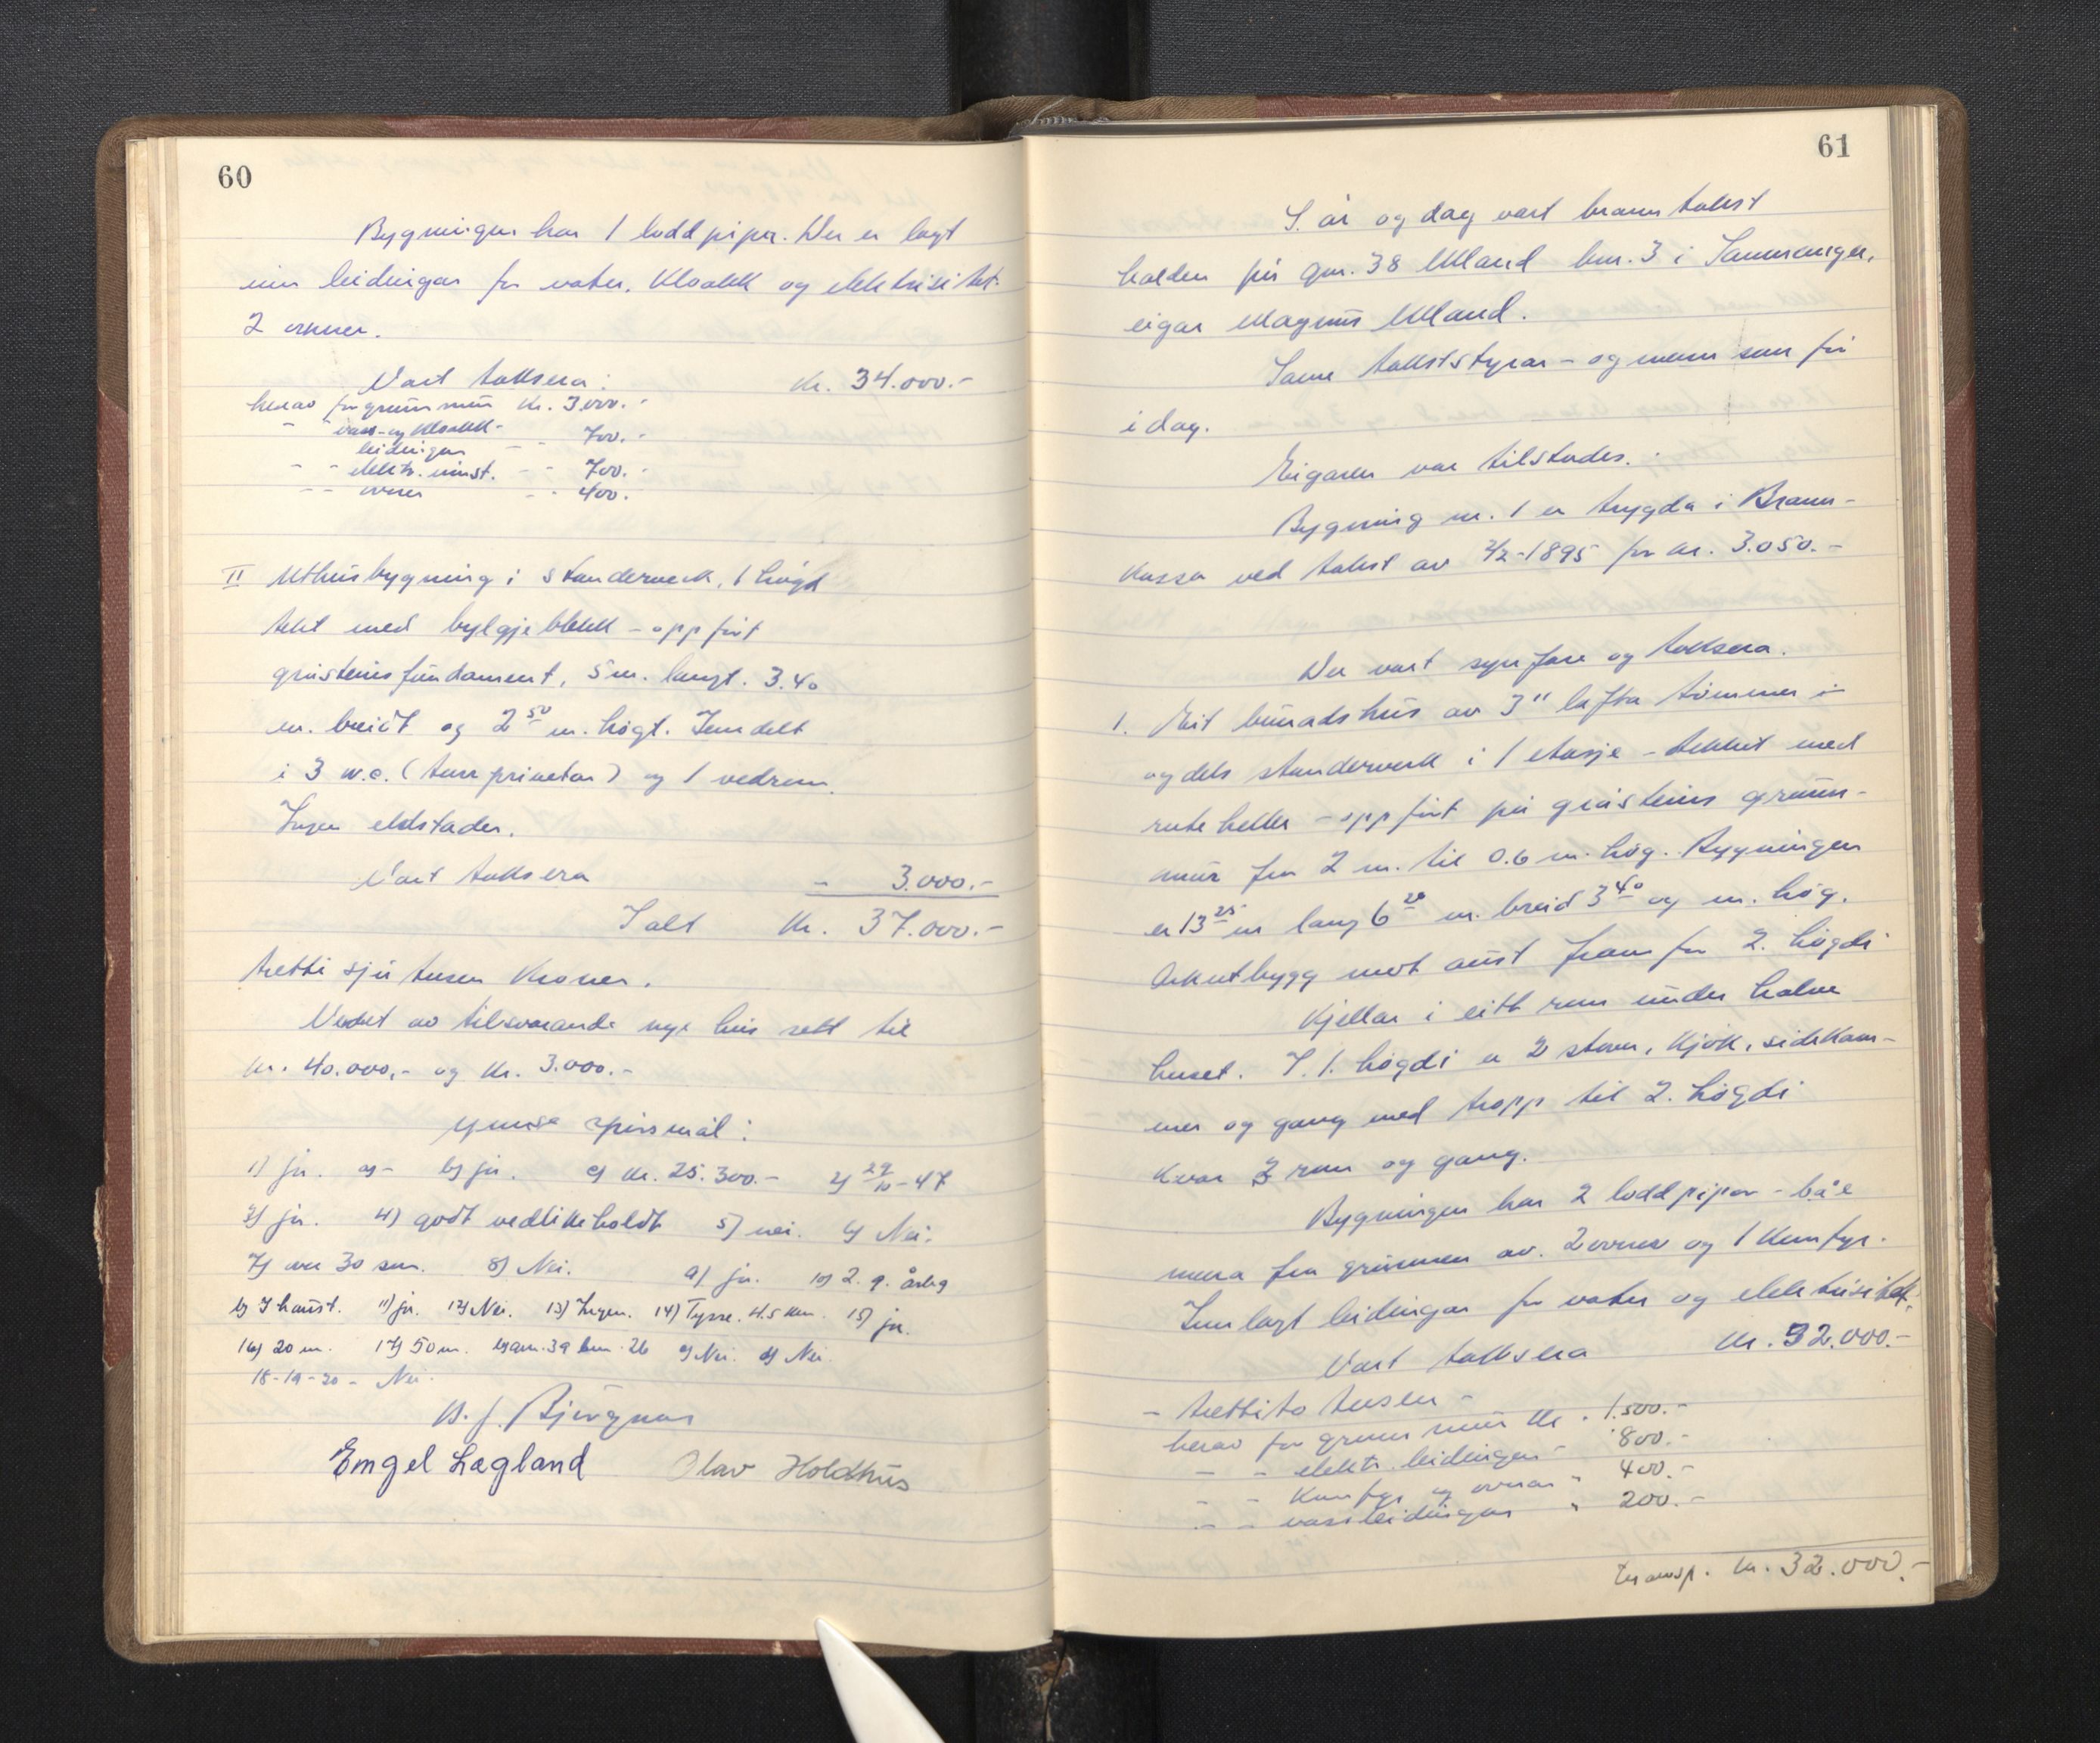 60
Bygningen har 1 loddpipe. Der er lagt
inn leidingar for vatn, kloakk og elektrisitet.
2 omner.
Vart taksera: kr. 34.000.-
herav for grunnmur kr. 3000.-
" " vass- og kloakk-
leidingar - - 700.-
" " elektr. innst. - - 700.-
" " ovner - - 400.-
II Uthusbygning i standerverk, 1 høgd
tekt med bylgjeblekk - oppført
gråsteinsfundament, 5 m. langt. 3.40
m. breidt og 2 50 m. høgt. Inndelt
i 3 w.c. (turrprivetar) og 1 vedrom.
Ingen eldstader.
Vart taksera - 3.000.-
I alt kr. 37.000.-
tretti sju tusen kroner.
Verdet av tilsvarande nye hus sett til
kr. 40.000,- og kr. 3.000.-
Ymse spørsmål:
1) ja. a) - b) ja. c) kr. 25.300.- 2) 29/10-47
3) ja. 4) godt vedlikeholdt 5) nei. 6) Nei.
7) over 30 m. 8) Nei. 9) ja. 10) 2. g. årleg
b) I haust. 11) ja. 12) Nei. 13) Ingen. 14) Tysse. 4.5 km. 15) ja.
16) 20 m. 17) 50 m. b) gnr. 39 bnr. 26 c) Nei. d) Nei.
18-19-20- Nei.
Bjørgum
Engel Lagland Olav Holdhus
61
S. år og dag vart branntakst
halden på gnr. 38 Ulland bnr. 3 i Samnanger,
eigar Magnus Ulland.
Same takststyrar - og menn som før
i dag.
Eigaren var tilstades.
Bygning nr. 1 er trygda i Brann-
kassa ved takst av 2/2-1895 for kr. 3.050.-
Der vart synfare og taksera.
1. Eit bunadshus av 3" lafta tømmer
og dels standerverk i 1 etasje - tekket med
ruteheller - oppført på gråsteins grunn-
mur fra 2 m. til 0.6 m. høg. Bygningen
er 13 25 m lang 6 20 m. breid 3 40 og m. høg.
Arkutbygg mot aust fram for 2. høgdi
Kjellar i eitt rom under halve
huset. I 1. høgdi er 2 stover, kjøk, sidekam-
mer og gang med tropp til 2. høgdi
kvar 3 rom og gang.
Bygningen har 2 loddpipor - båe
mura fra grunnen av. 2 ovner og 1 komfyr.
Innlagt leidingar for vatn og elektrisitet.
Vart taksera kr. 32.000.-
- trettito tusen -
herav for grunnmur kr. 1.500.-
- - elektr. leidingar - 800.-
- - komfyr og ovnar " 400.-
- - vassleidingar " 200.-
transp. kr. 32.000.-